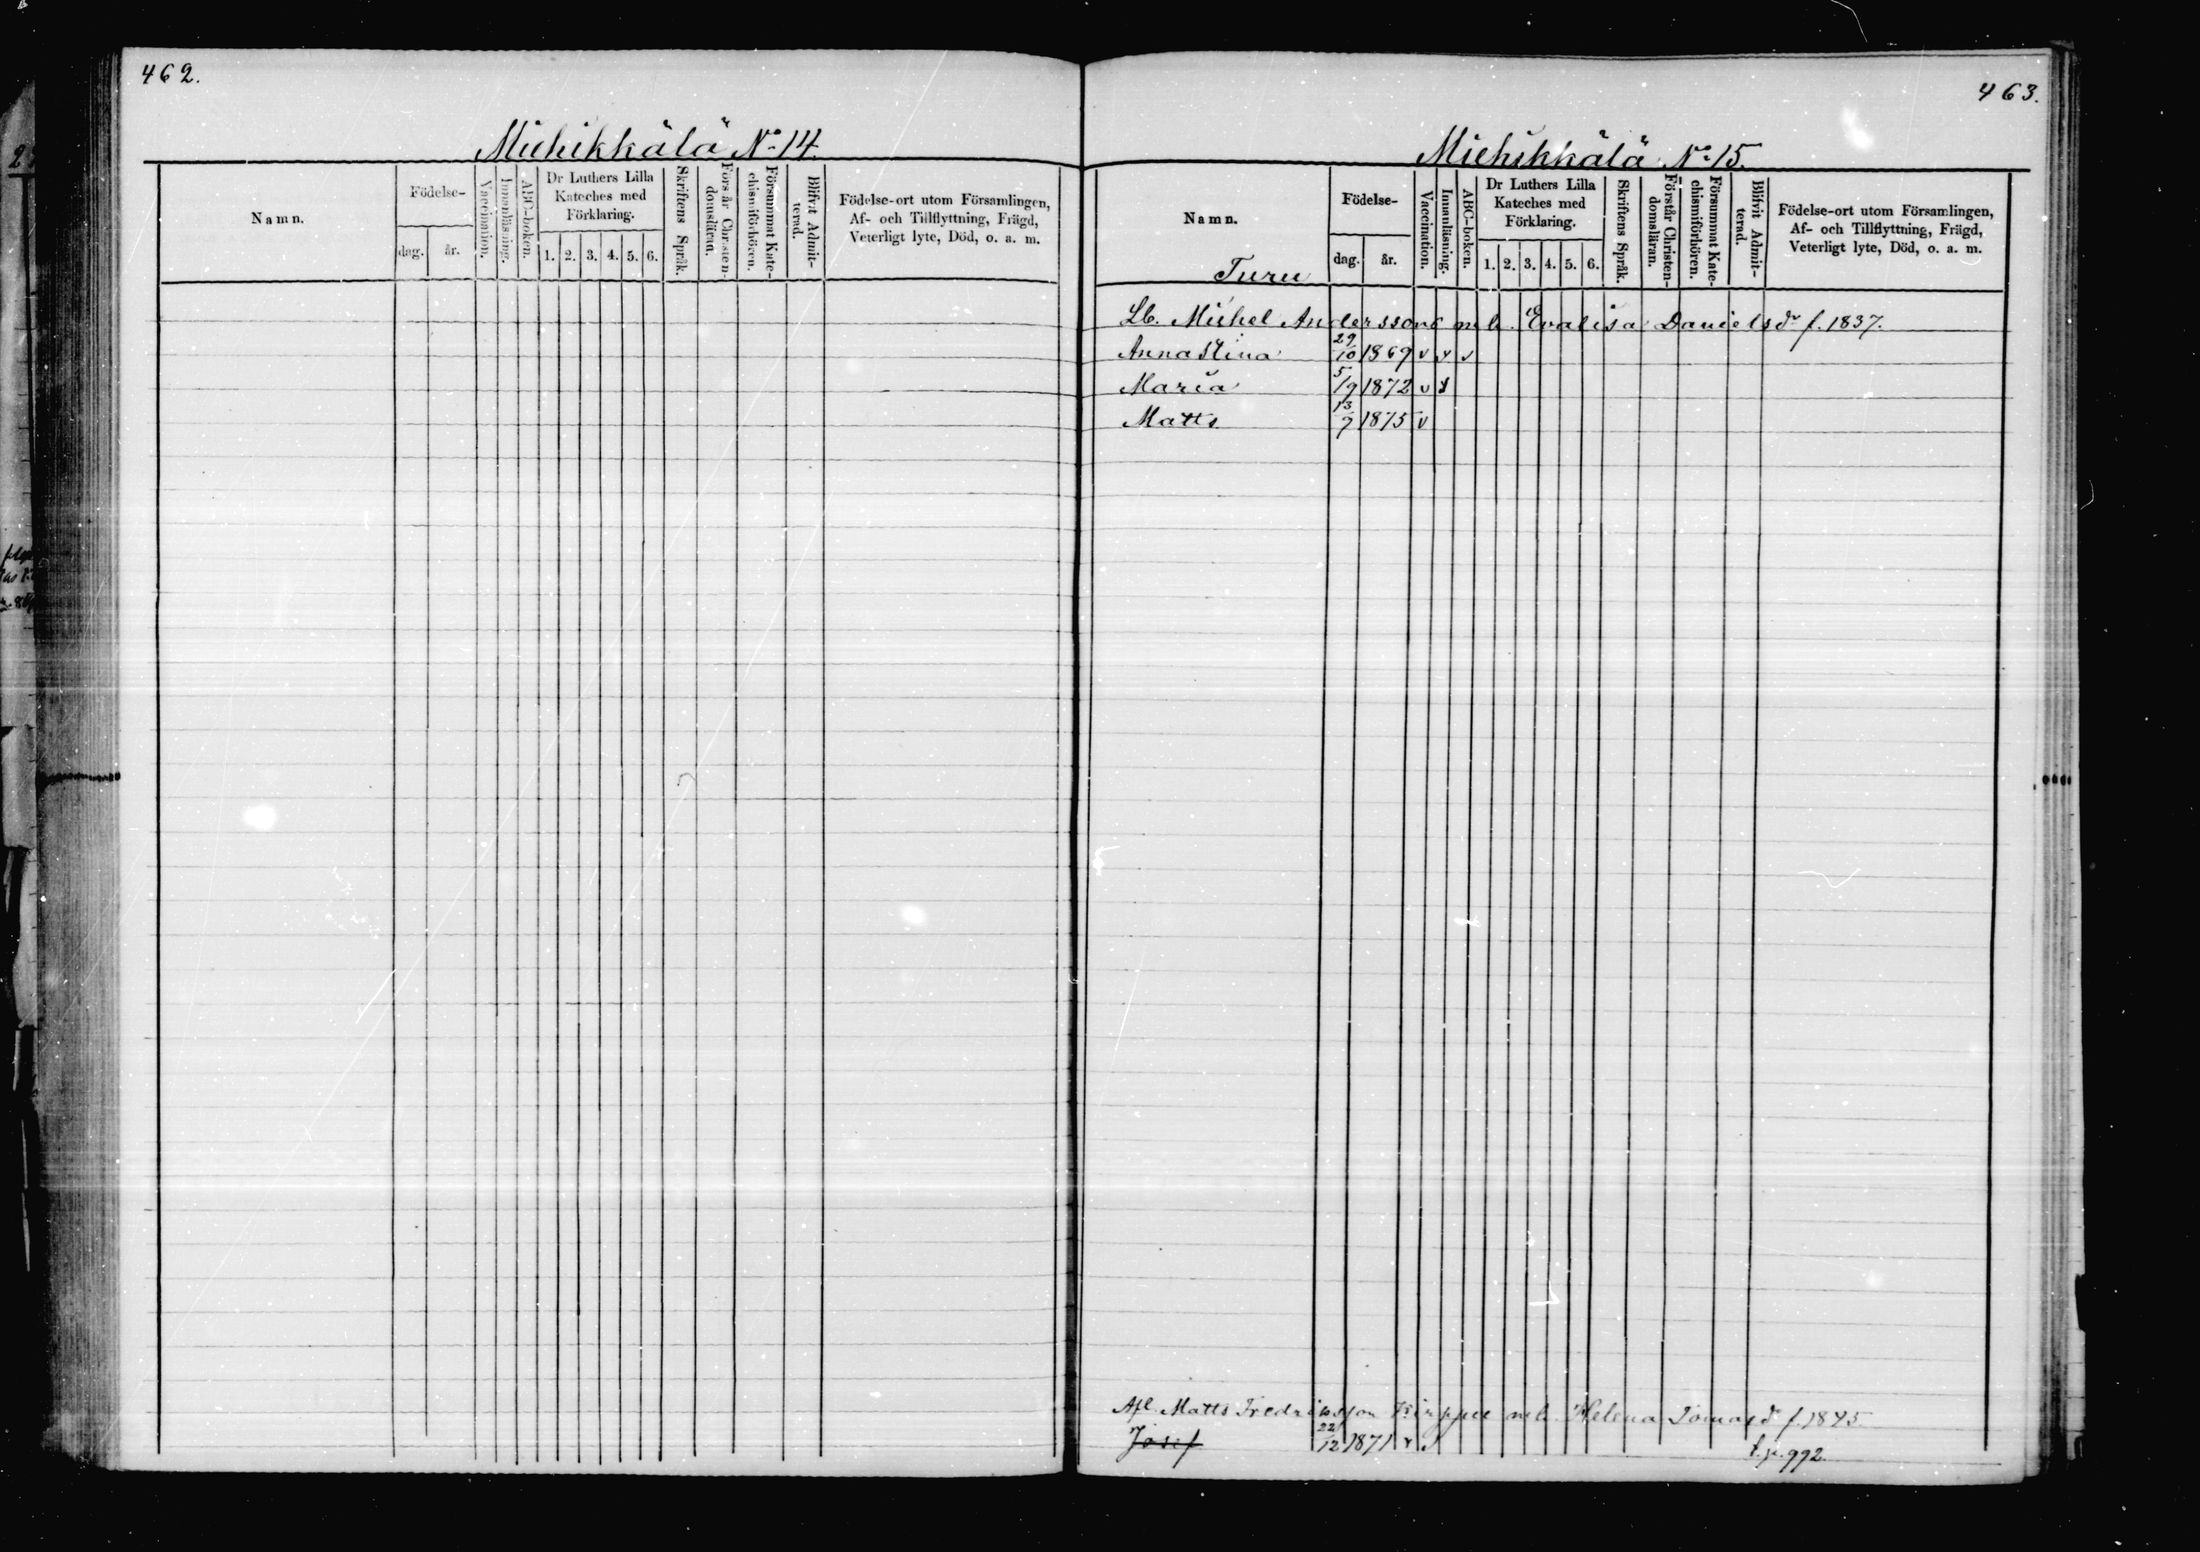 462.
Miehikkälä No 14.
Namn.
Födelse-
dag. år.
Vaccination.
Innanläsning.
ABC-boken.
Dr Luthers Lilla
Kateches med
Förklaring.
1. 2. 3. 4. 5. 6.
Skriftens Språk.
Förstår Christen-
domsläran.
Försummat Kate-
chismiförhören.
Blifvit Admit-
terad.
Födelse-ort utom Församlingen,
Af- och Tillflyttning, Frägd,
Veterligt lyte, Död, o. a. m.
463.
Miehikkälä No 15.
Namn.
Turu
Födelse-
dag. år.
Vaccination.
Innanläsning.
ABC-boken.
Dr Luthers Lilla
Kateches med
Förklaring.
1. 2. 3. 4. 5. 6.
Skriftens Språk.
Förstår Christen-
domsläran.
Försummat Kate-
chismiförhören.
Blifvit Admit-
terad.
Födelse-ort utom Församlingen,
Af- och Tillflyttning, Frägd,
Veterligt lyte, Död, o. a. m.
Lb. Michel Anderssons m. h. Evalisa Danielsdr f. 1837.
Anna Stina 29/10 1869 v v v
Maria 5/9 1872 v
Matts 13/9 1875 v
Afl. Matts Fredriksson m. h. Helena Tomasdr f. 1845.
Josef 22/12 1871 v
t. p. 992.